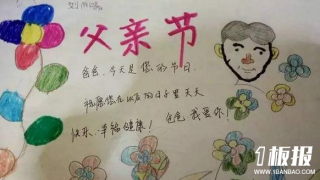 父亲节
爸爸，今天是您的节日
祝愿您在以后的日子里天天
快乐，幸福健康！爸爸我爱你！
1板报
WWW.1BANBAO.COM